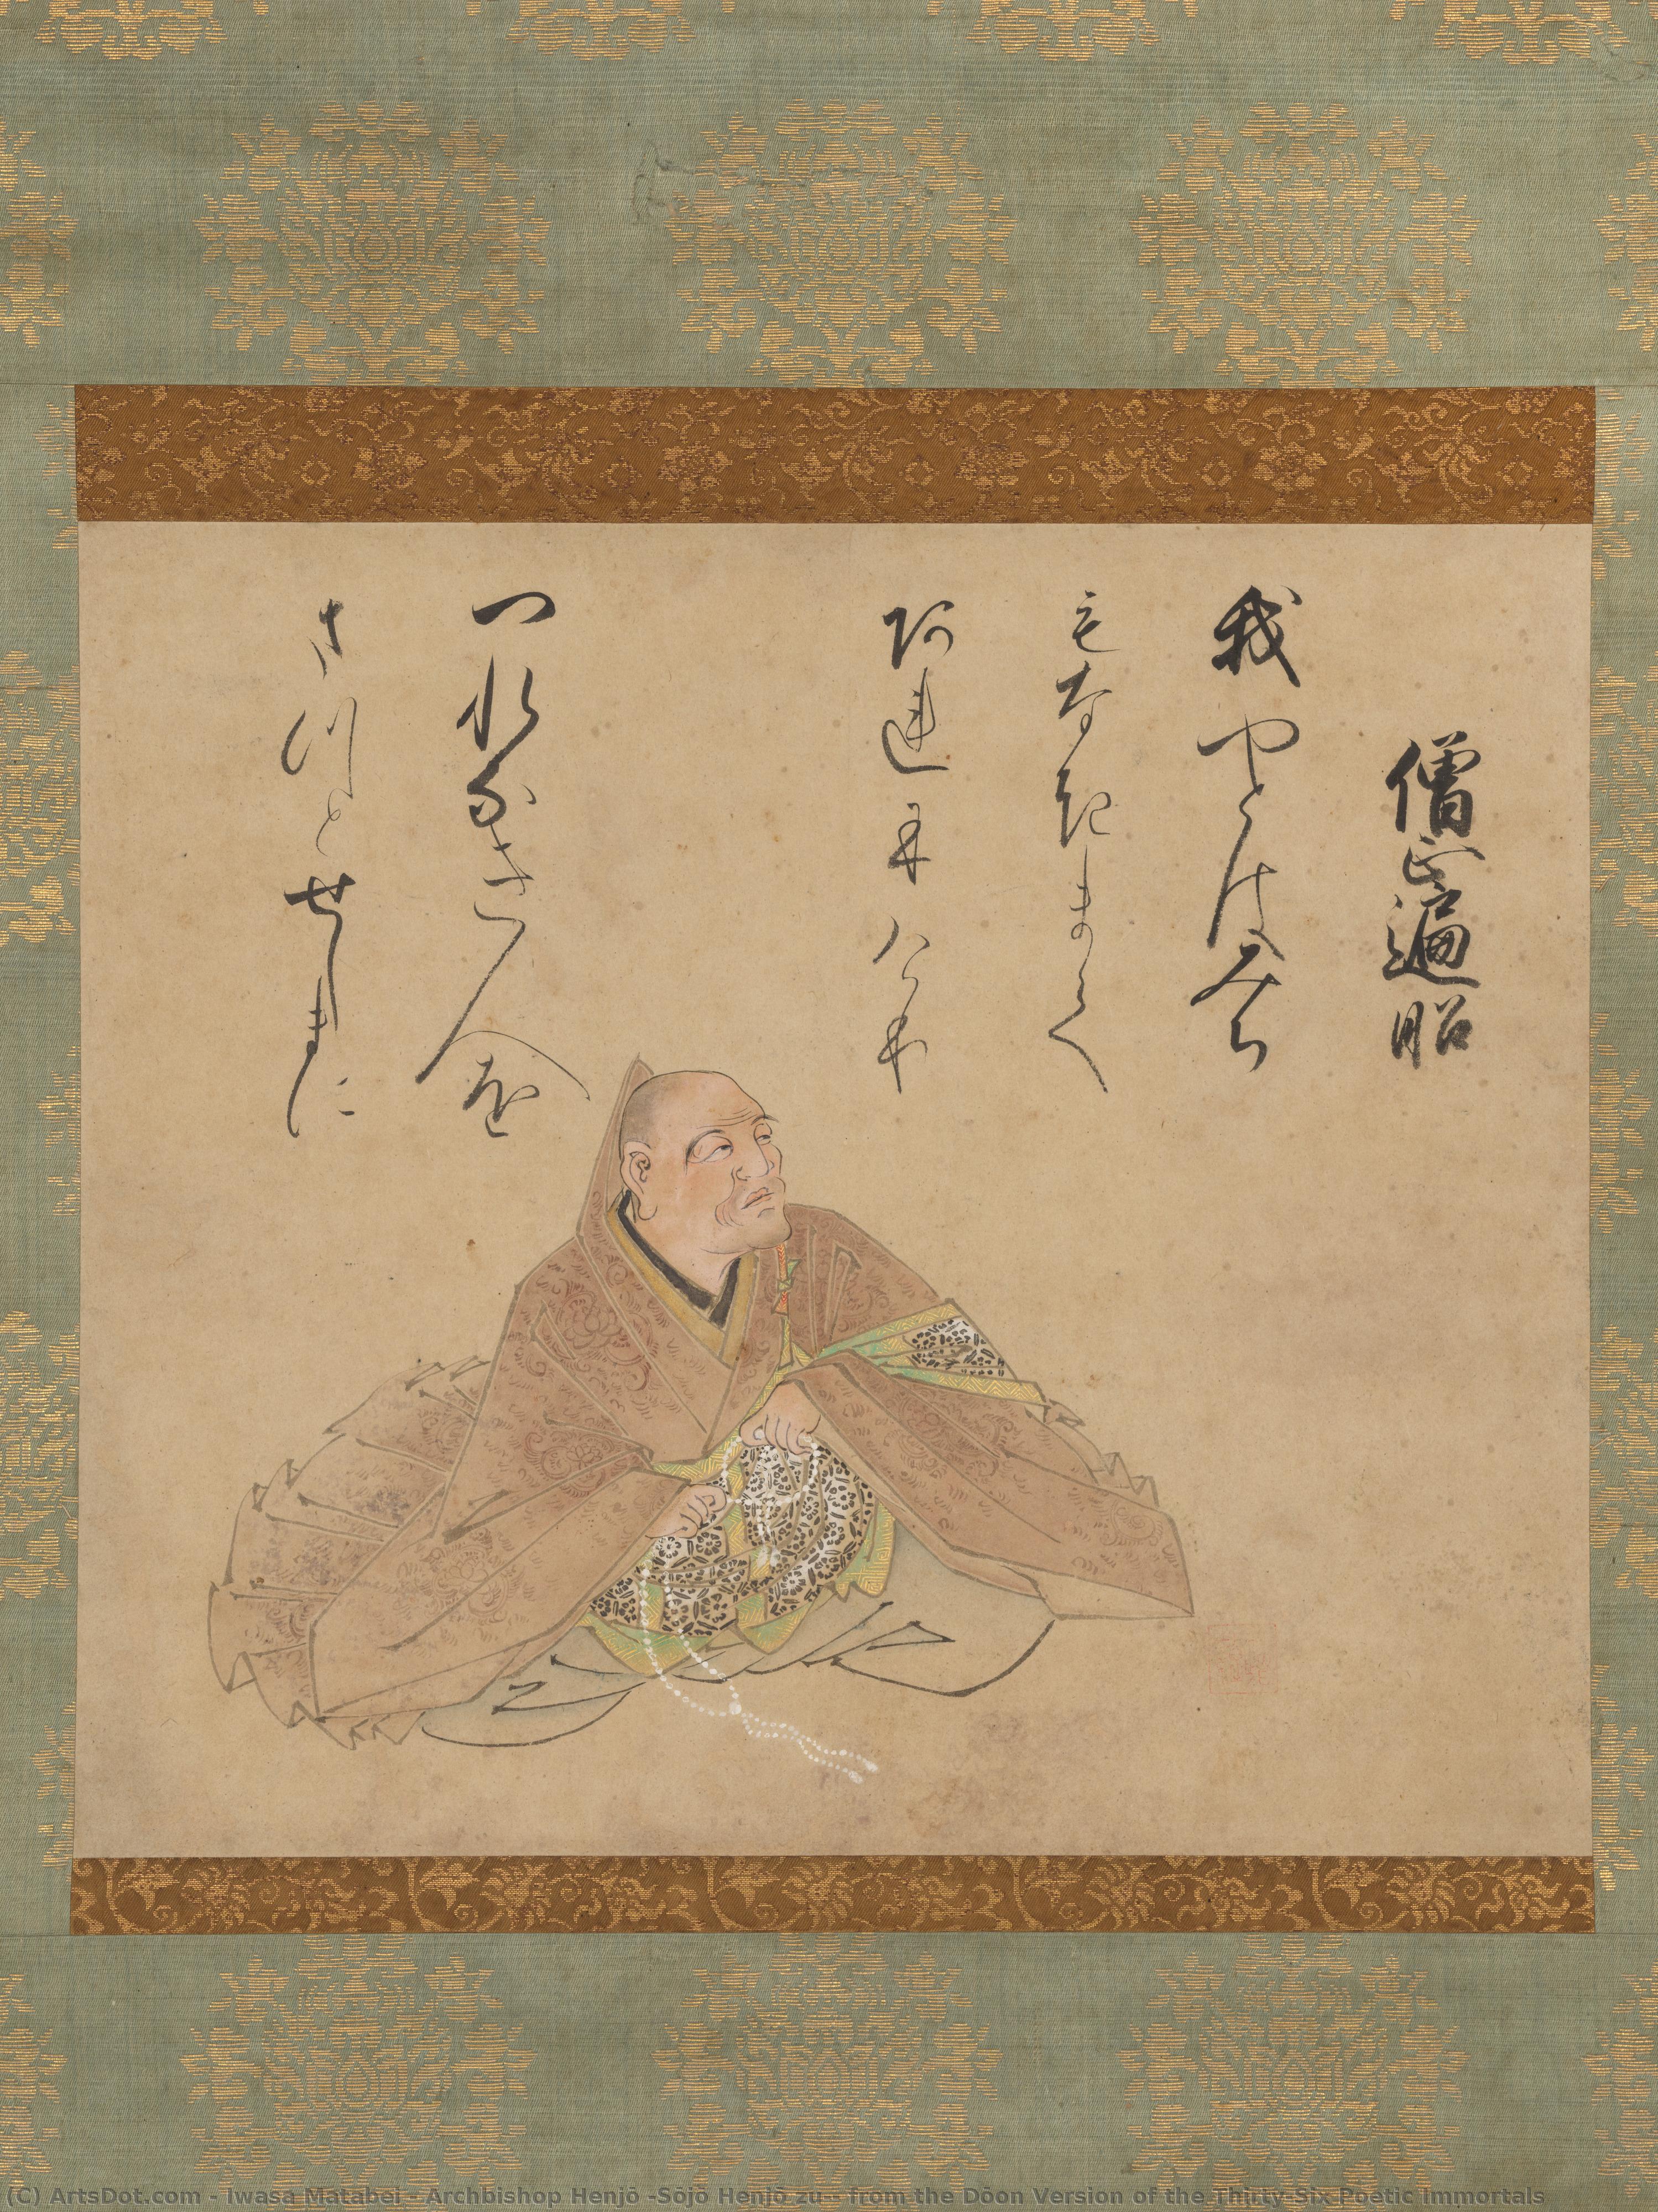 僧正遍昭
我やとはみち
もなきまて
阿連にけり
つれなき人を
まつとせしまに
(C) ArtsDot.com - Iwasa Matabei - Archbishop Henjō -Sōjō Henjō zu - from the Dōon Version of the Thirty-Six Poetic Immortals